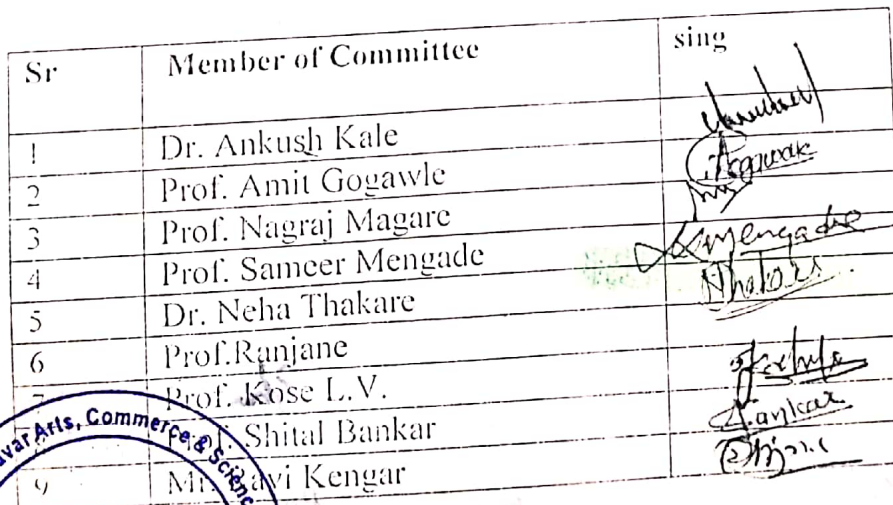 Sr Member of Committee sing
1 Dr. Ankush Kale
2 Prof. Amit Gogawle
3 Prof. Nagraj Magare
4 Prof. Sameer Mengade Mengade
5 Dr. Neha Thakare
6 Prof.Ranjane
7 Prof. Kose L.V.
Shital Bankar Bankar
9 Mr. Ravi Kengar
Arts, Commerce & Scienc